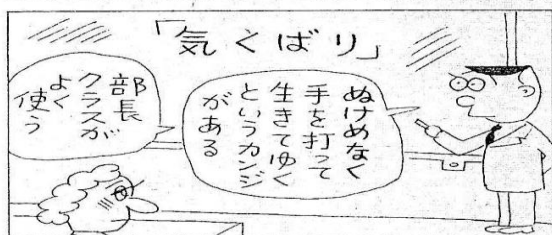 「気くばり」
ぬけめなく
手を打って
生きてゆく
というカンジ
がある
部長
クラスが
よく
使う